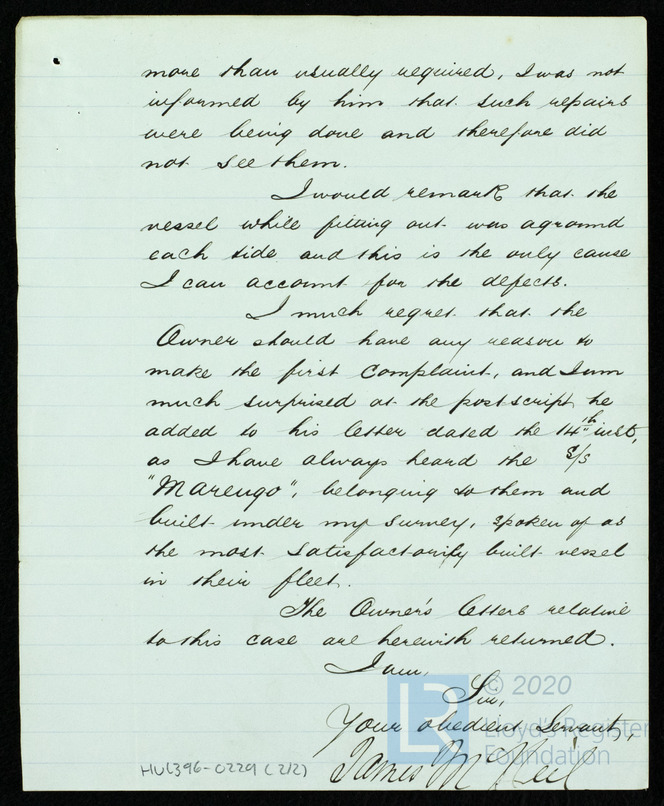 more than usually required, I was not
informed by him that such repairs
were being done and therefore did
not see them.
I would remark that the
vessel while fitting out was aground
each side and this is the only cause
I can account for the defects.
I much regret that the
Owner should have any reason to
make the first complaint, and I am
much surprised at the postscript he
added to his letter dated the 14th inst,
as I have always heard the S/S
"Marengo", belonging to them and
built under my survey, spoken of as
the most satisfactorily built vessel
in their fleet.
The Owner's letters relative
to this case are herewith returned.
I am,
Sir,
Your obedient Servant,
James McNeil
HUL396-0229 (2/2)
© 2020
Lloyd's Register
Foundation
LR